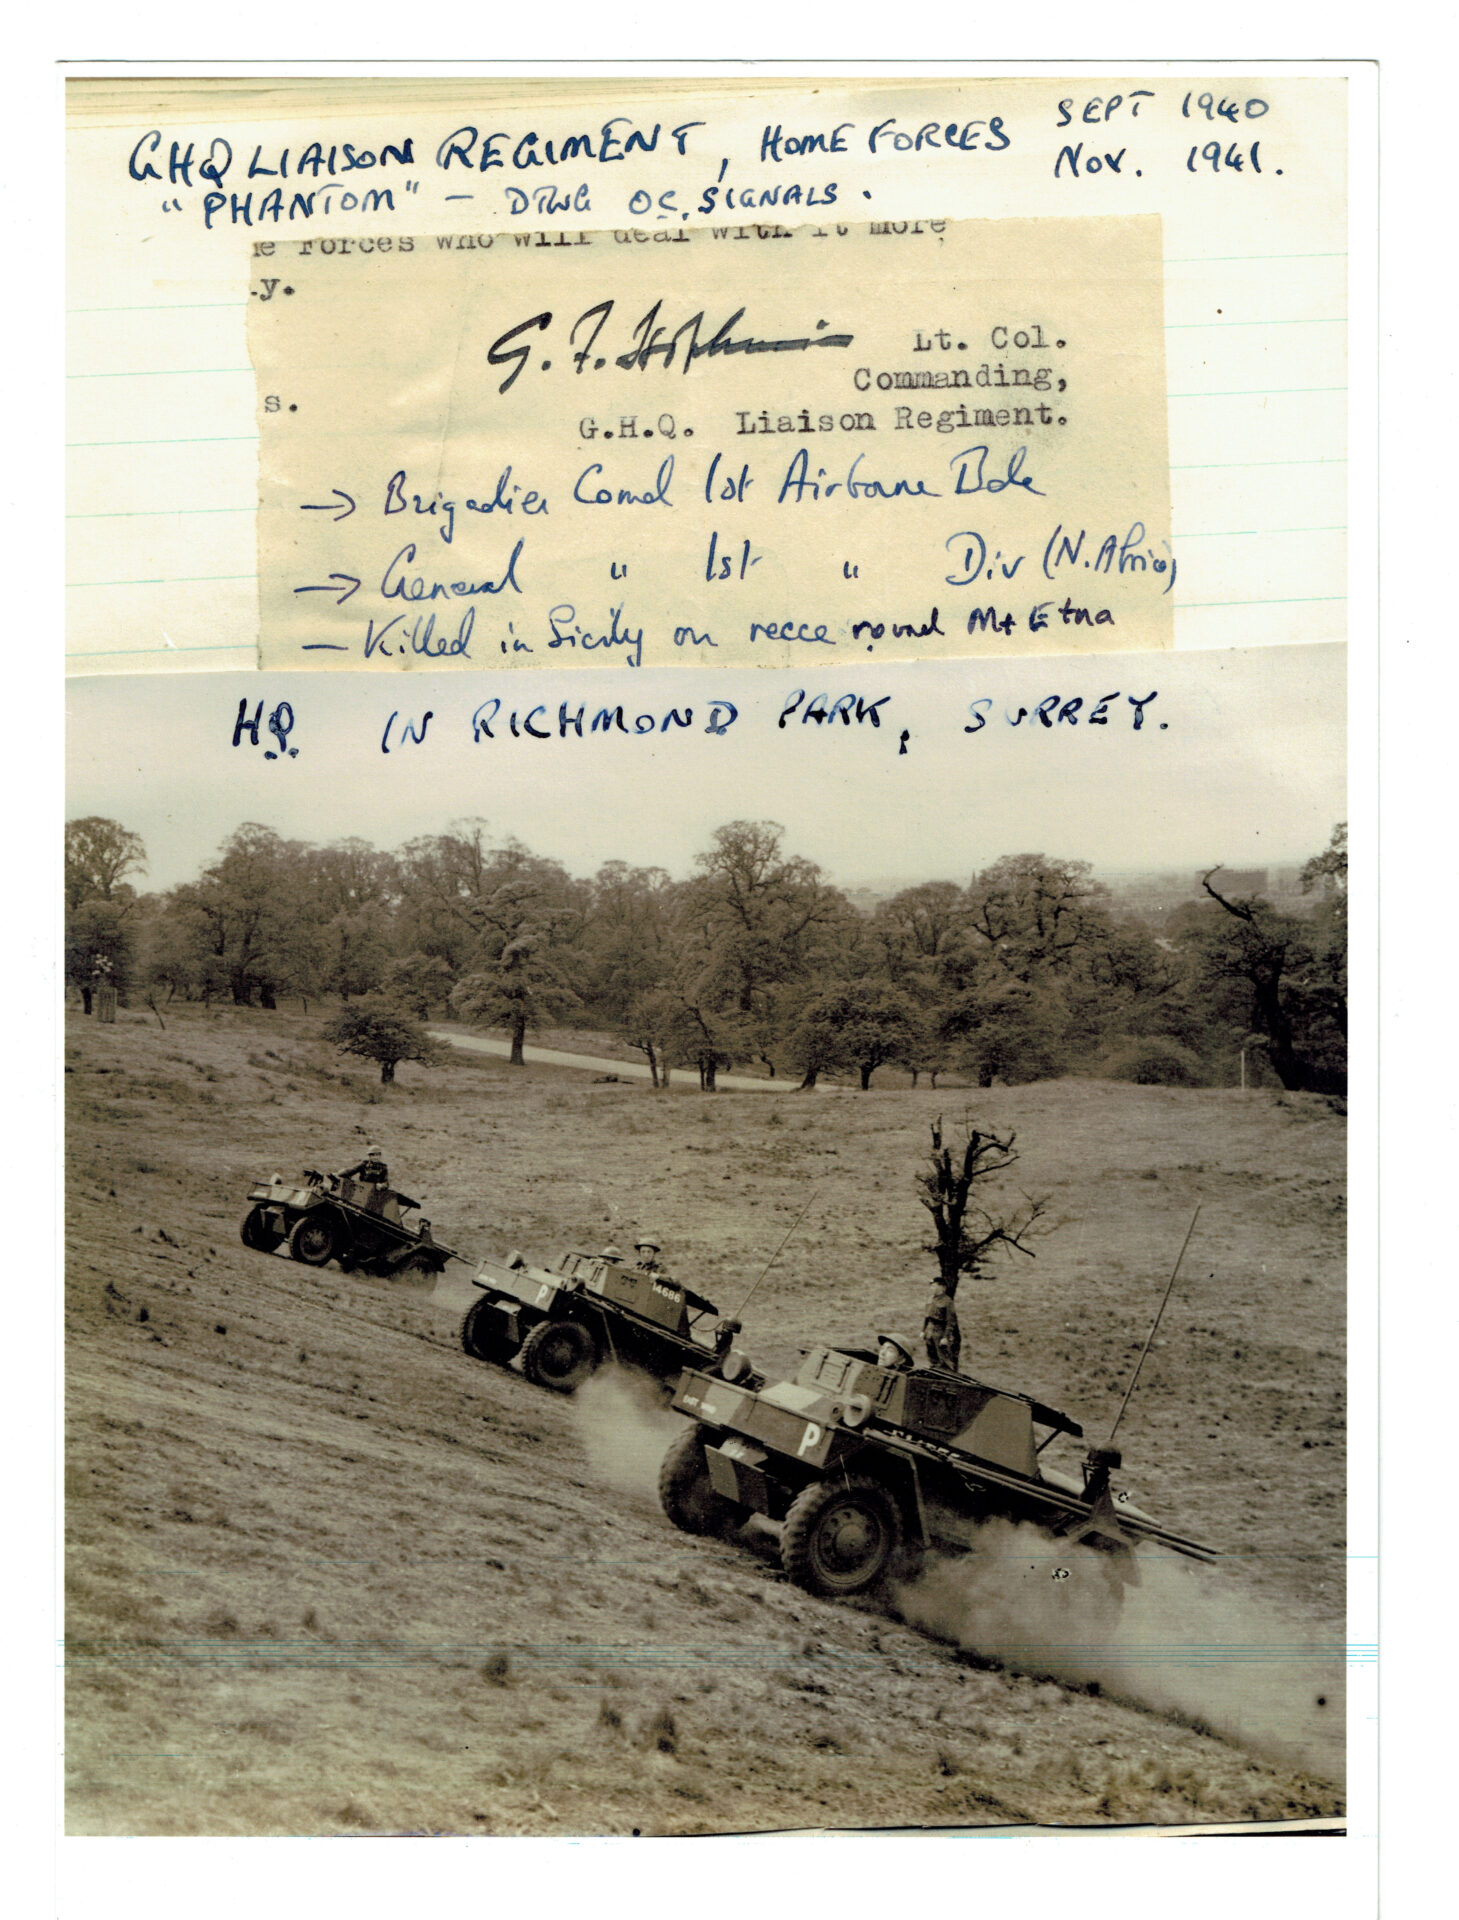 GHQ LIAISON REGIMENT, HOME FORCES SEPT 1940
NOV. 1941.
"PHANTOM" – DTWG OC. SIGNALS.
e Forces who will deal with it more
y.
G. F. Hopkinson Lt. Col.
Commanding,
s.
G.H.Q. Liaison Regiment.
→ Brigadier Comd 1st Airborne Bde
→ General " 1st " Div (N. Africa)
— Killed in Sicily on recce round Mt Etna
HQ. IN RICHMOND PARK, SURREY.
P
14686
P